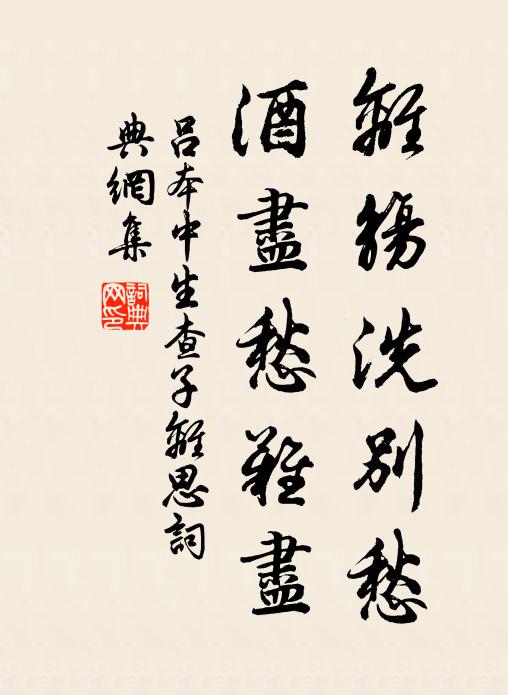 離觴洗別愁
酒盡愁難盡
呂本中生查子離思詞
典網集
詞典
网印